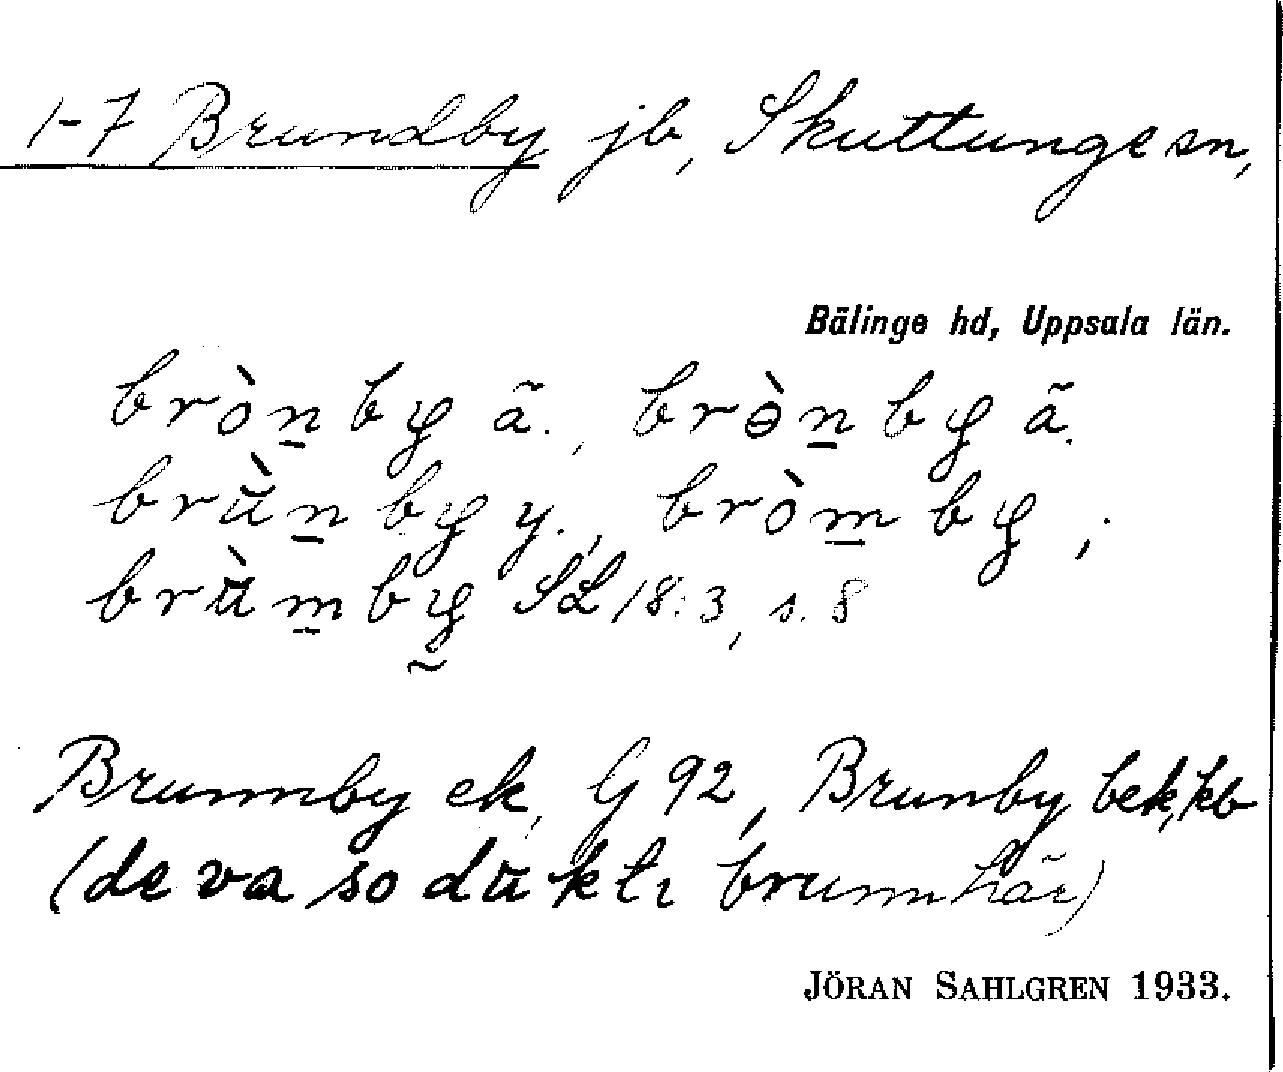 1-7 Brundby jb, Skuttunge sn,
Bälinge hd, Uppsala län.
brò̱nby ã., brɵ̀ṉby ã.
brùṉby y., bròm̱by ;
brùm̱by SL 18:3, s. 8
Brunnby ek, G 92, Brunby bek, kb
(de va so duktı brunn hãr)
JÖRAN SAHLGREN 1933.